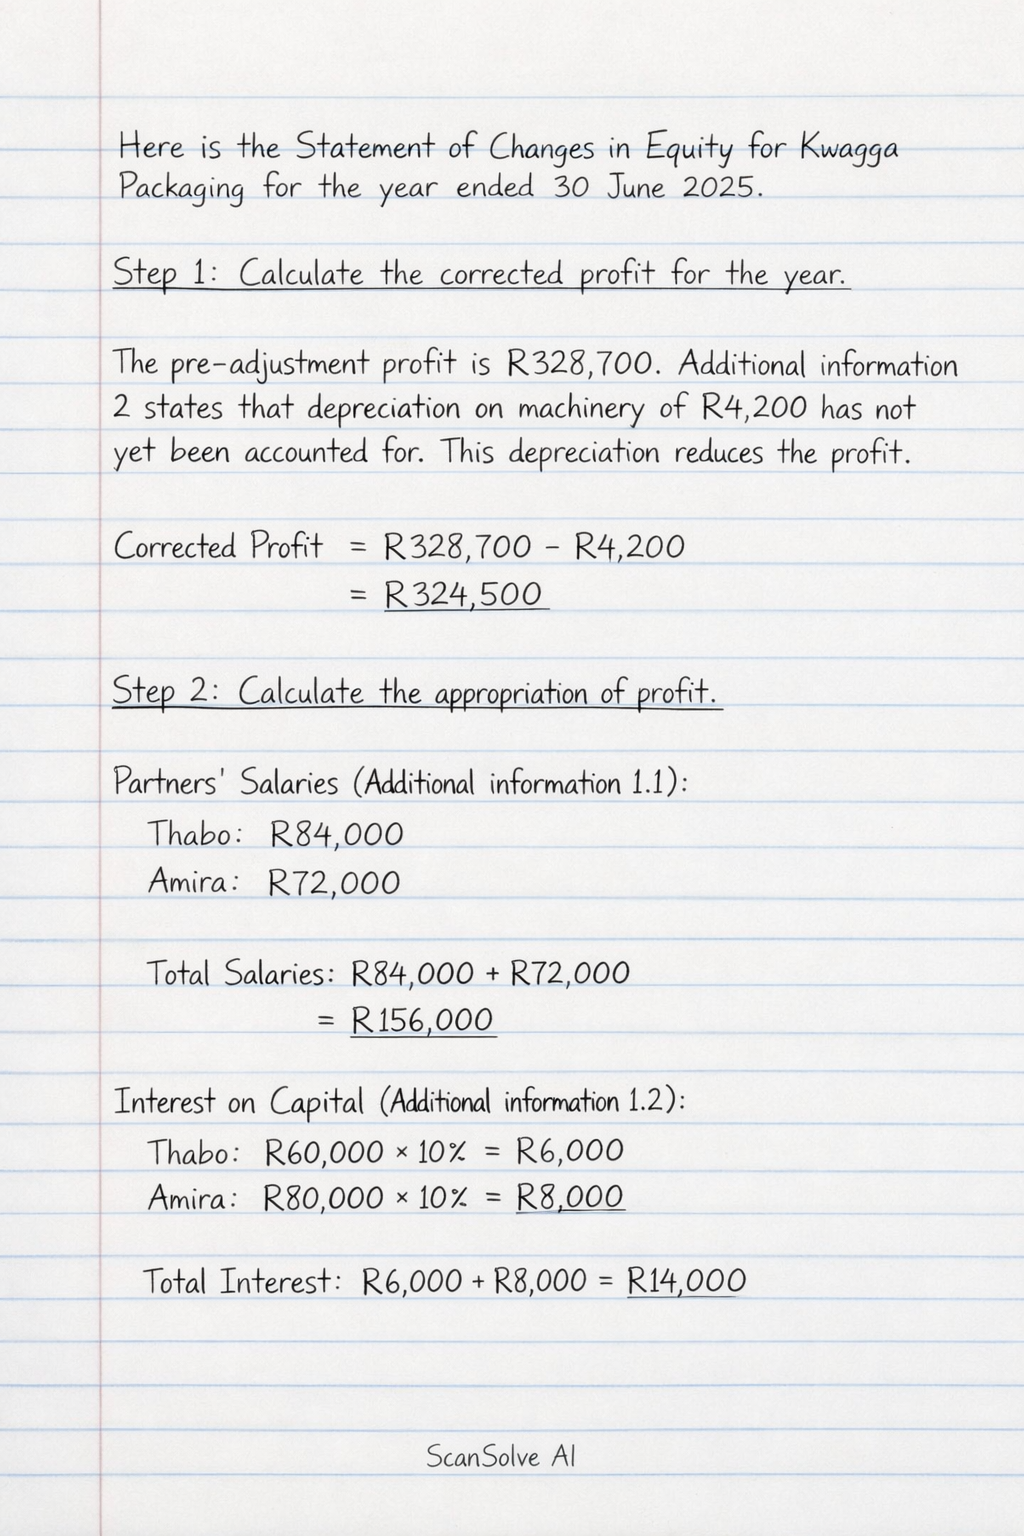 Here is the Statement of Changes in Equity for Kwagga
Packaging for the year ended 30 June 2025.
Step 1: Calculate the corrected profit for the year.
The pre-adjustment profit is R328,700. Additional information
2 states that depreciation on machinery of R4,200 has not
yet been accounted for. This depreciation reduces the profit.
Corrected Profit = R328,700 - R4,200
= R324,500
Step 2: Calculate the appropriation of profit.
Partners' Salaries (Additional information 1.1):
Thabo: R84,000
Amira: R72,000
Total Salaries: R84,000 + R72,000
= R156,000
Interest on Capital (Additional information 1.2):
Thabo: R60,000 × 10% = R6,000
Amira: R80,000 × 10% = R8,000
Total Interest: R6,000 + R8,000 = R14,000
ScanSolve AI